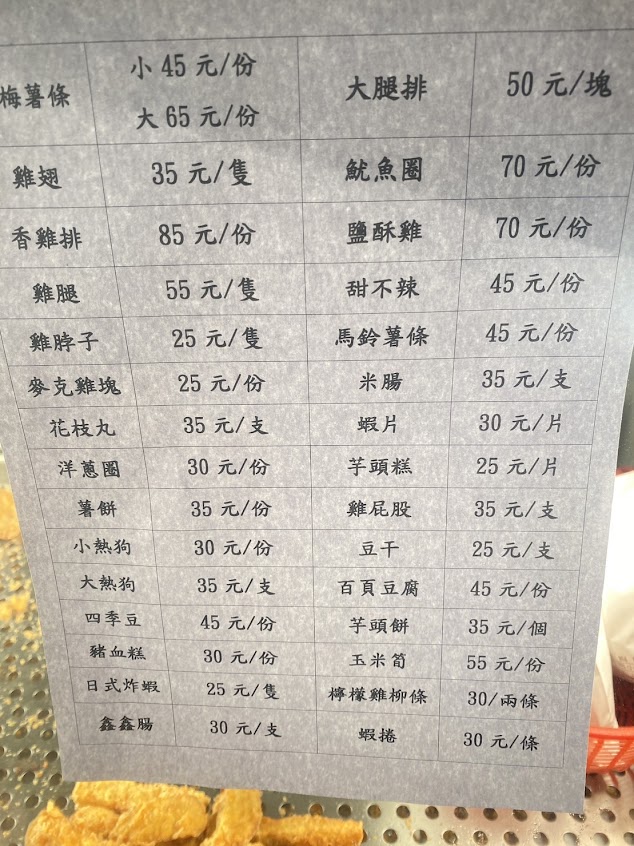 梅薯條 小 45 元/份 大腿排 50 元/塊
大 65 元/份
雞翅 35 元/隻 魷魚圈 70 元/份
香雞排 85 元/份 鹽酥雞 70 元/份
雞腿 55 元/隻 甜不辣 45 元/份
雞脖子 25 元/隻 馬鈴薯條 45 元/份
麥克雞塊 25 元/份 米腸 35 元/支
花枝丸 35 元/支 蝦片 30 元/片
洋蔥圈 30 元/份 芋頭糕 25 元/片
薯餅 35 元/份 雞屁股 35 元/支
小熱狗 30 元/份 豆干 25 元/支
大熱狗 35 元/支 百頁豆腐 45 元/份
四季豆 45 元/份 芋頭餅 35 元/個
豬血糕 30 元/份 玉米筍 55 元/份
日式炸蝦 25 元/隻 檸檬雞柳條 30/兩條
鑫鑫腸 30 元/支 蝦捲 30 元/條